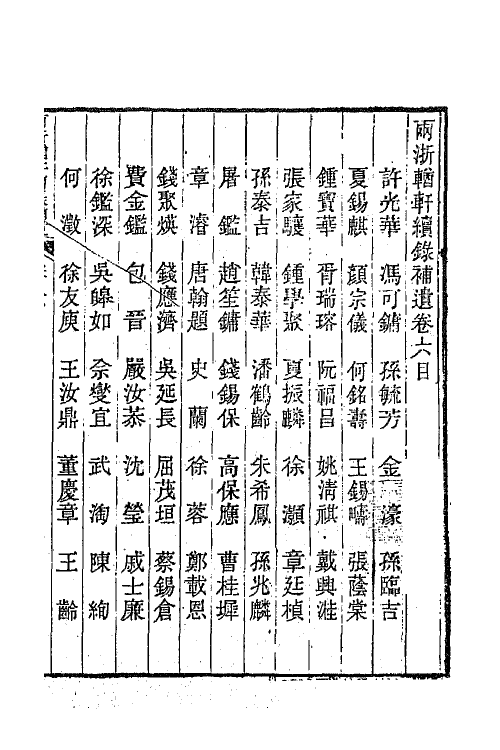 兩浙輶軒續錄補遺卷六目
許光華 馮可鏞 孫毓芳 金濠 孫臨吉
夏錫麒 顏宗儀 何銘壽 王錫疇 張蔭棠
鍾寶華 胥瑞瑢 阮福昌 姚清祺 戴興漄
張家驤 鍾學聚 夏振麟 徐灝 章廷楨
孫泰吉 韓泰華 潘鶴齡 朱希鳳 孫兆麟
屠鑑 趙笙鏞 錢錫保 高保應 曹桂墀
章濬 唐翰題 史蘭 徐蓉 鄭載恩
錢聚煐 錢應濟 吳延長 屈茂垣 蔡錫倉
費金鑑 包晉 嚴汝菾 沈瑩 戚士廉
徐鑑深 吳皞如 佘燮宜 武淘 陳絢
何澂 徐友庾 王汝鼎 董慶章 王齡